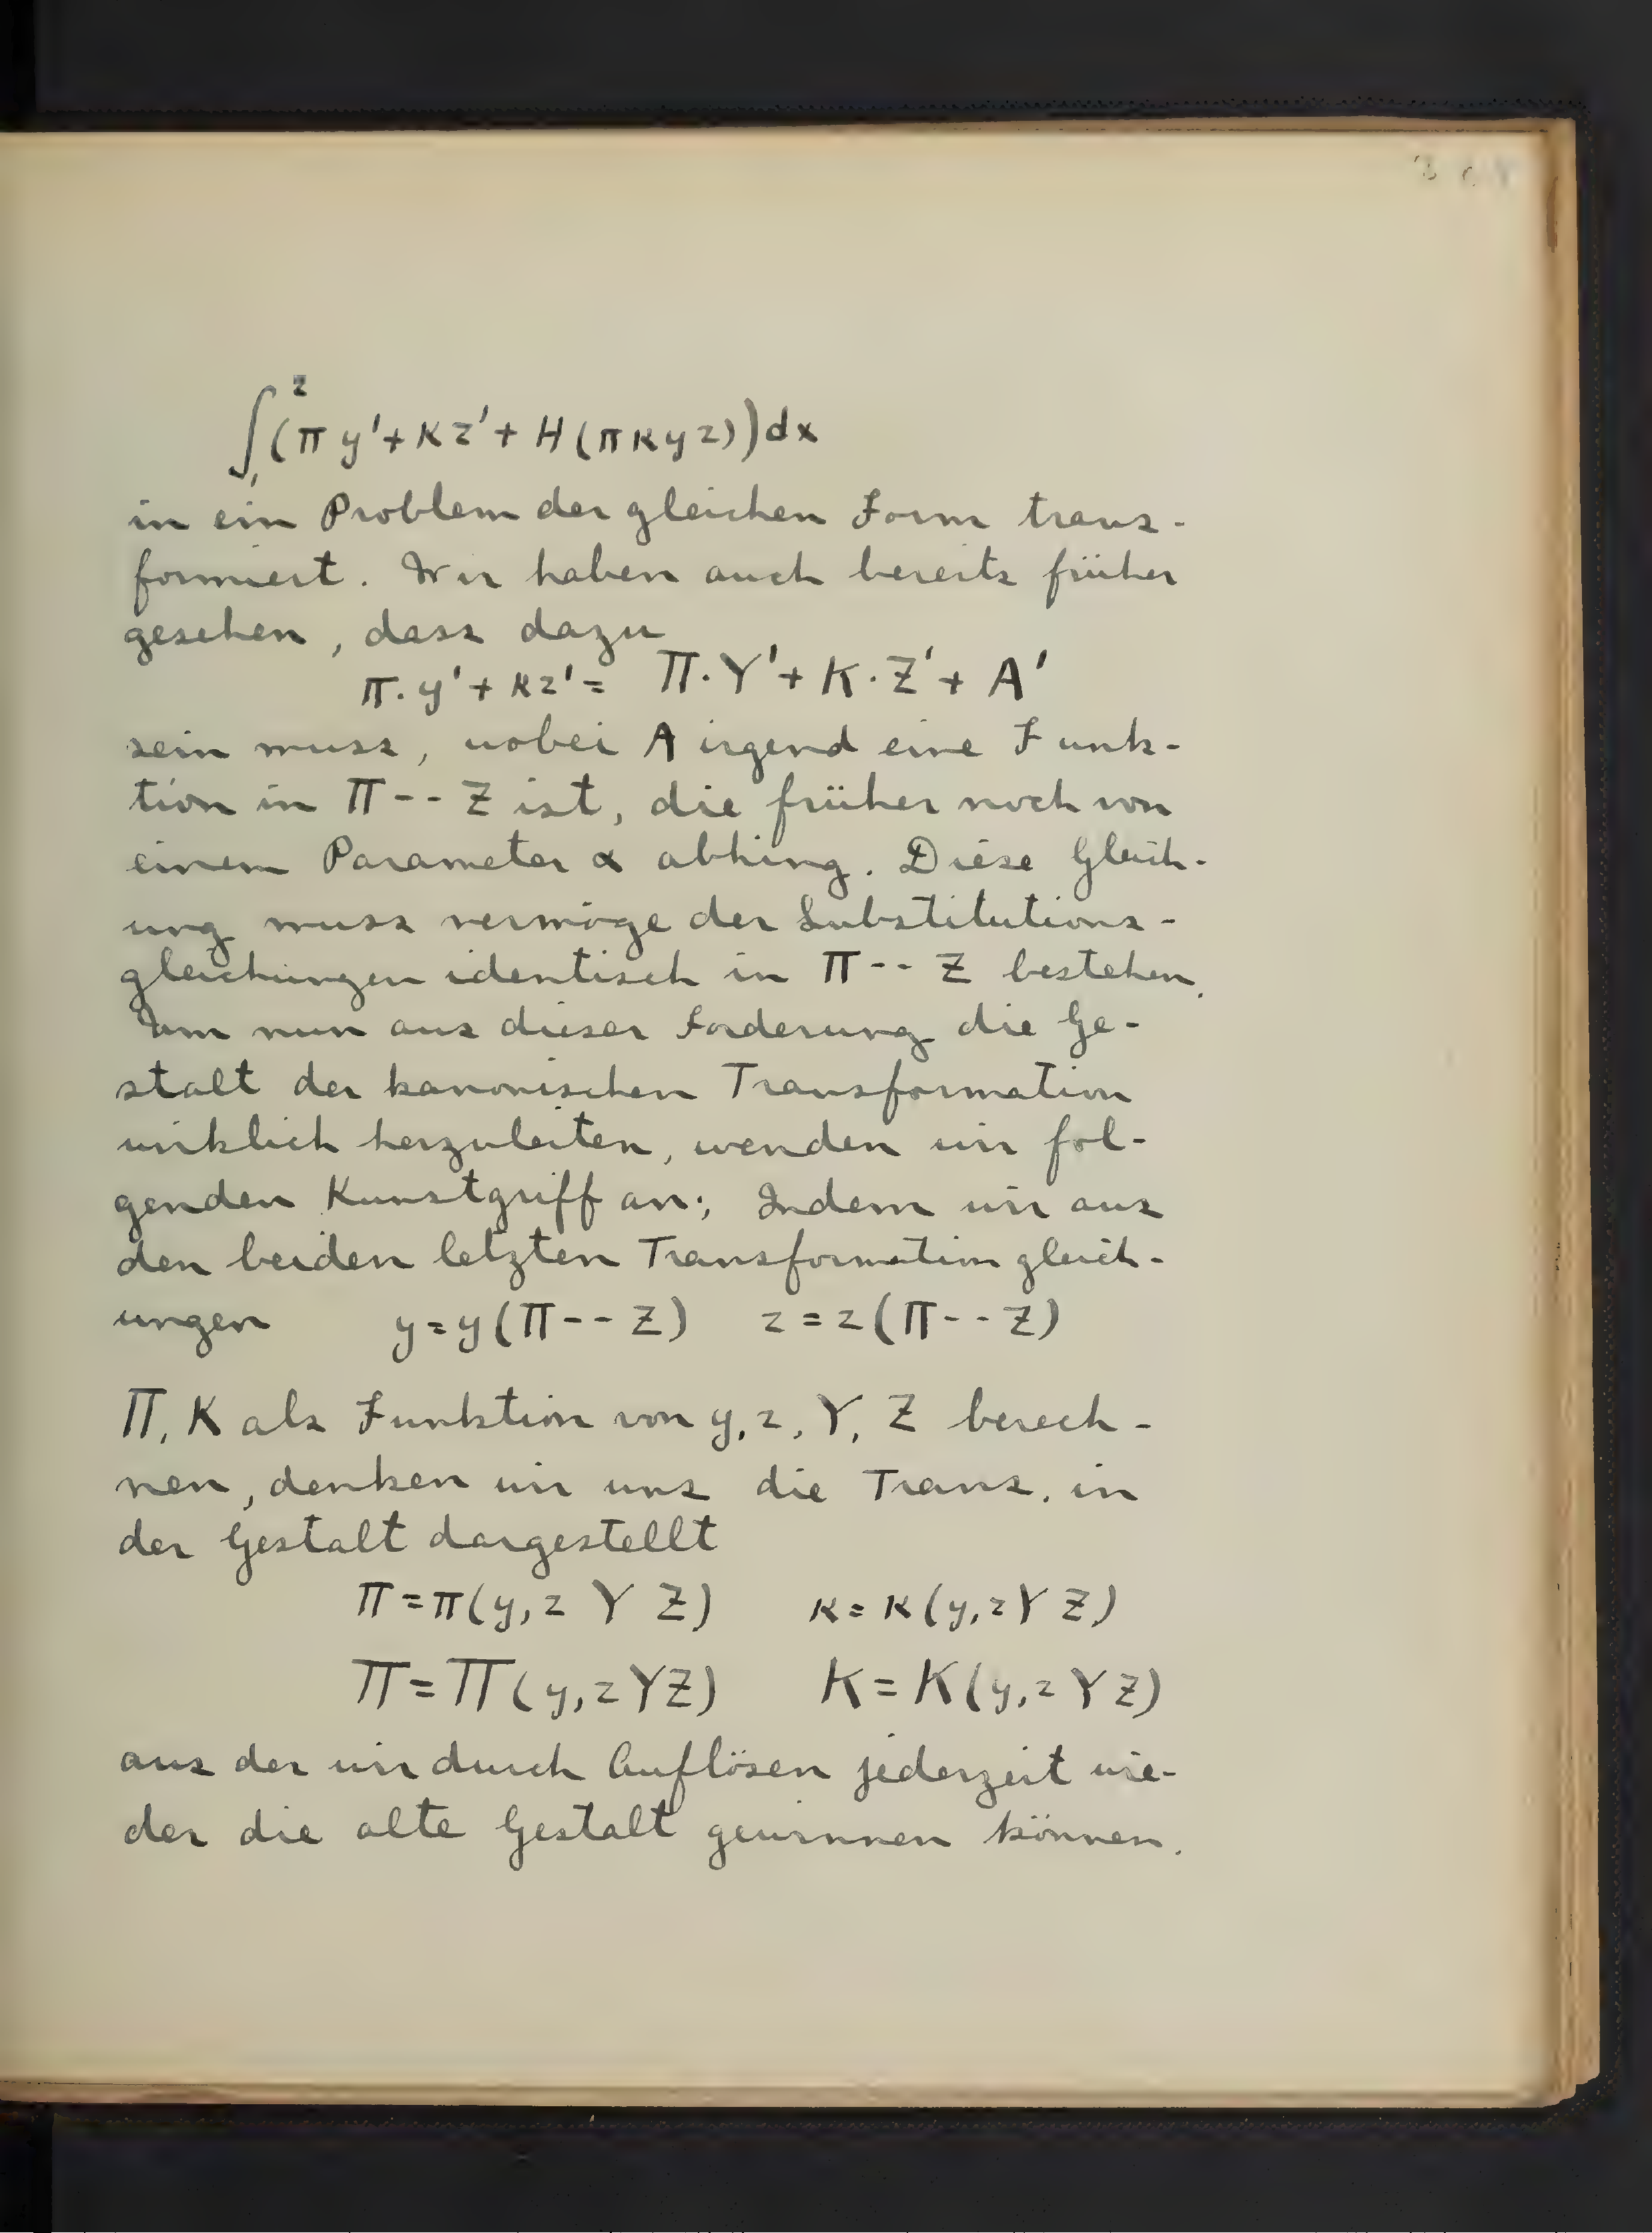 ∫₁² (π y' + κ z' + H (π κ y z)) dx
in ein Problem der gleichen Form trans-
formiert. Wir haben auch bereits früher
gesehen, dass dazu
π · y' + κ z' = Π · Y' + K · Z' + A'
sein muss, wobei A irgend eine Funk-
tion in Π -- Z ist, die früher noch von
einem Parameter α abhing. Diese Gleich-
ung muss vermöge der Substitutions-
gleichungen identisch in Π -- Z bestehen.
Um nun aus dieser Forderung die Ge-
stalt der kanonischen Transformation
wirklich herzuleiten, wenden wir fol-
genden Kunstgriff an; Indem wir aus
den beiden letzten Transformation gleich-
ungen y = y (Π -- Z) z = z (Π -- Z)
Π, K als Funktion von y, z, Y, Z berech-
nen, denken wir uns die Trans. in
der Gestalt dargestellt
π = π (y, z Y Z) κ = κ (y, z Y Z)
Π = Π (y, z Y Z) K = K (y, z Y Z)
aus der wir durch Auflösen jederzeit wie-
der die alte Gestalt gewinnen können.